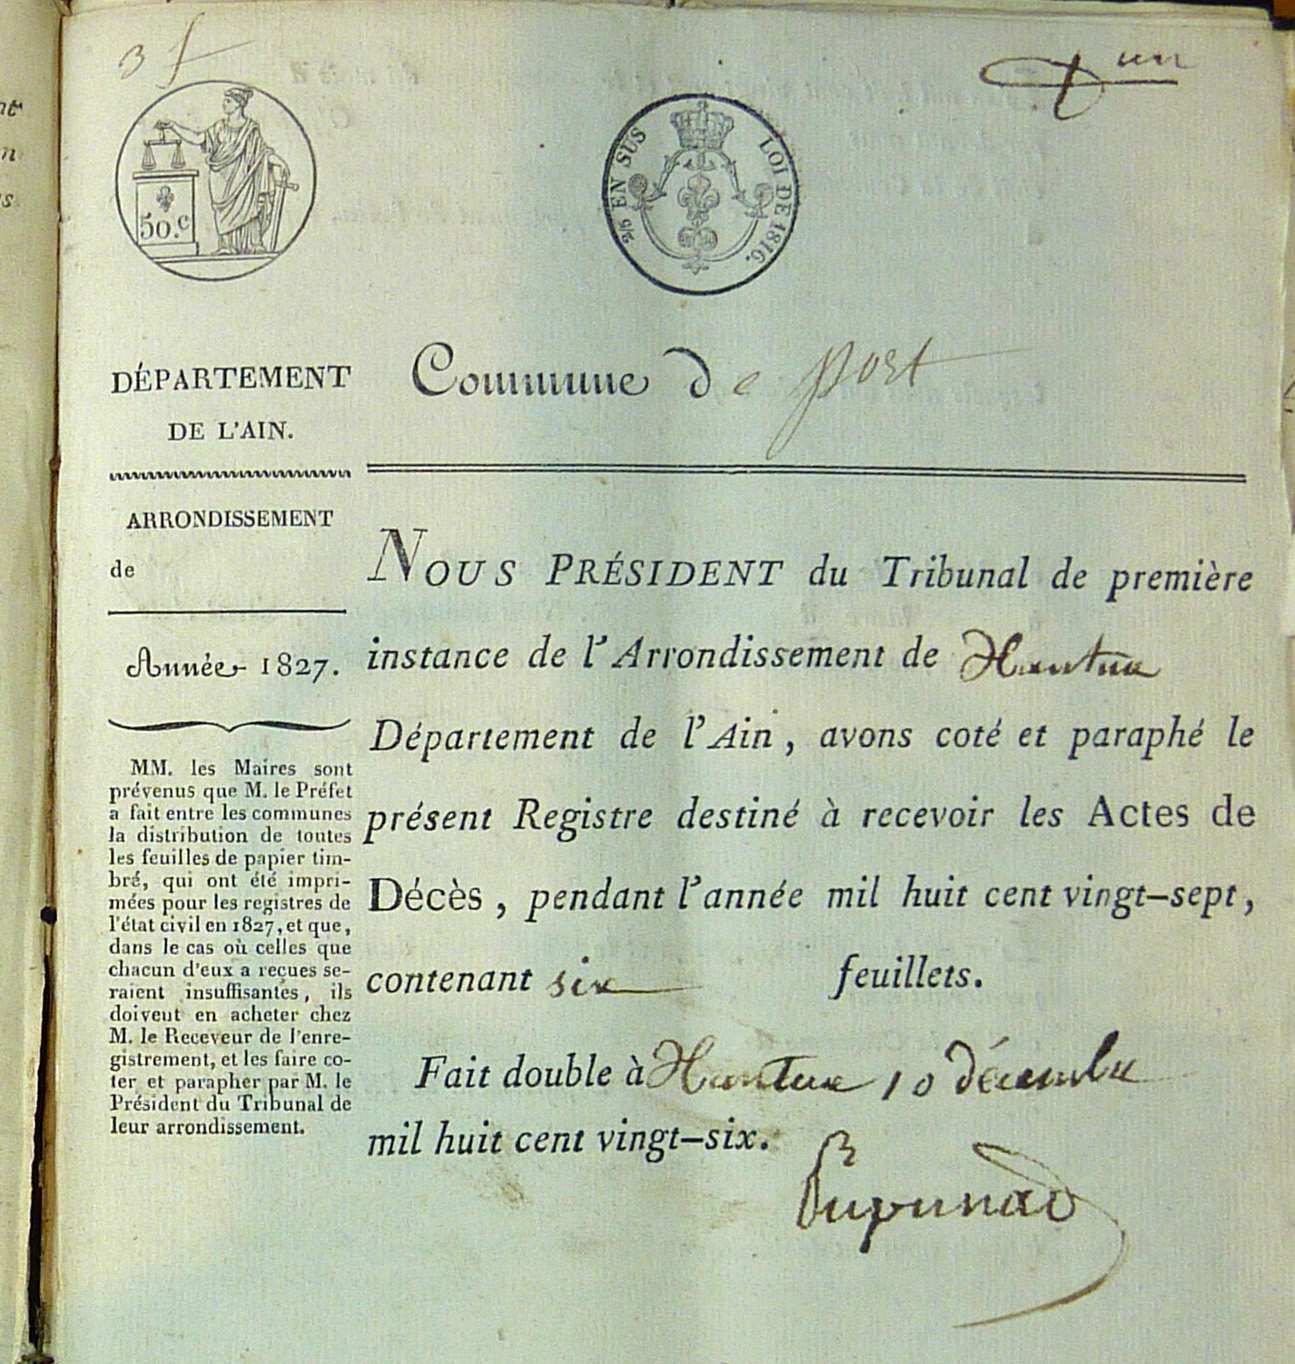 3 f
un
50.c
2/5 EN SUS
LOI DE 1816.
DÉPARTEMENT
DE L'AIN.
ARRONDISSEMENT
de
Année 1827.
MM. les Maires sont
prévenus que M. le Préfet
a fait entre les communes
la distribution de toutes
les feuilles de papier tim-
bré, qui ont été impri-
mées pour les registres de
l'état civil en 1827, et que,
dans le cas où celles que
chacun d'eux a reçues se-
raient insuffisantes, ils
doivent en acheter chez
M. le Receveur de l'enre-
gistrement, et les faire co-
ter et parapher par M. le
Président du Tribunal de
leur arrondissement.
Commune de port
NOUS PRÉSIDENT du Tribunal de première
instance de l'Arrondissement de Nantua
Département de l'Ain, avons coté et paraphé le
présent Registre destiné à recevoir les Actes de
Décès, pendant l'année mil huit cent vingt-sept,
contenant six feuillets.
Fait double à Nantua 10 décembre
mil huit cent vingt-six.